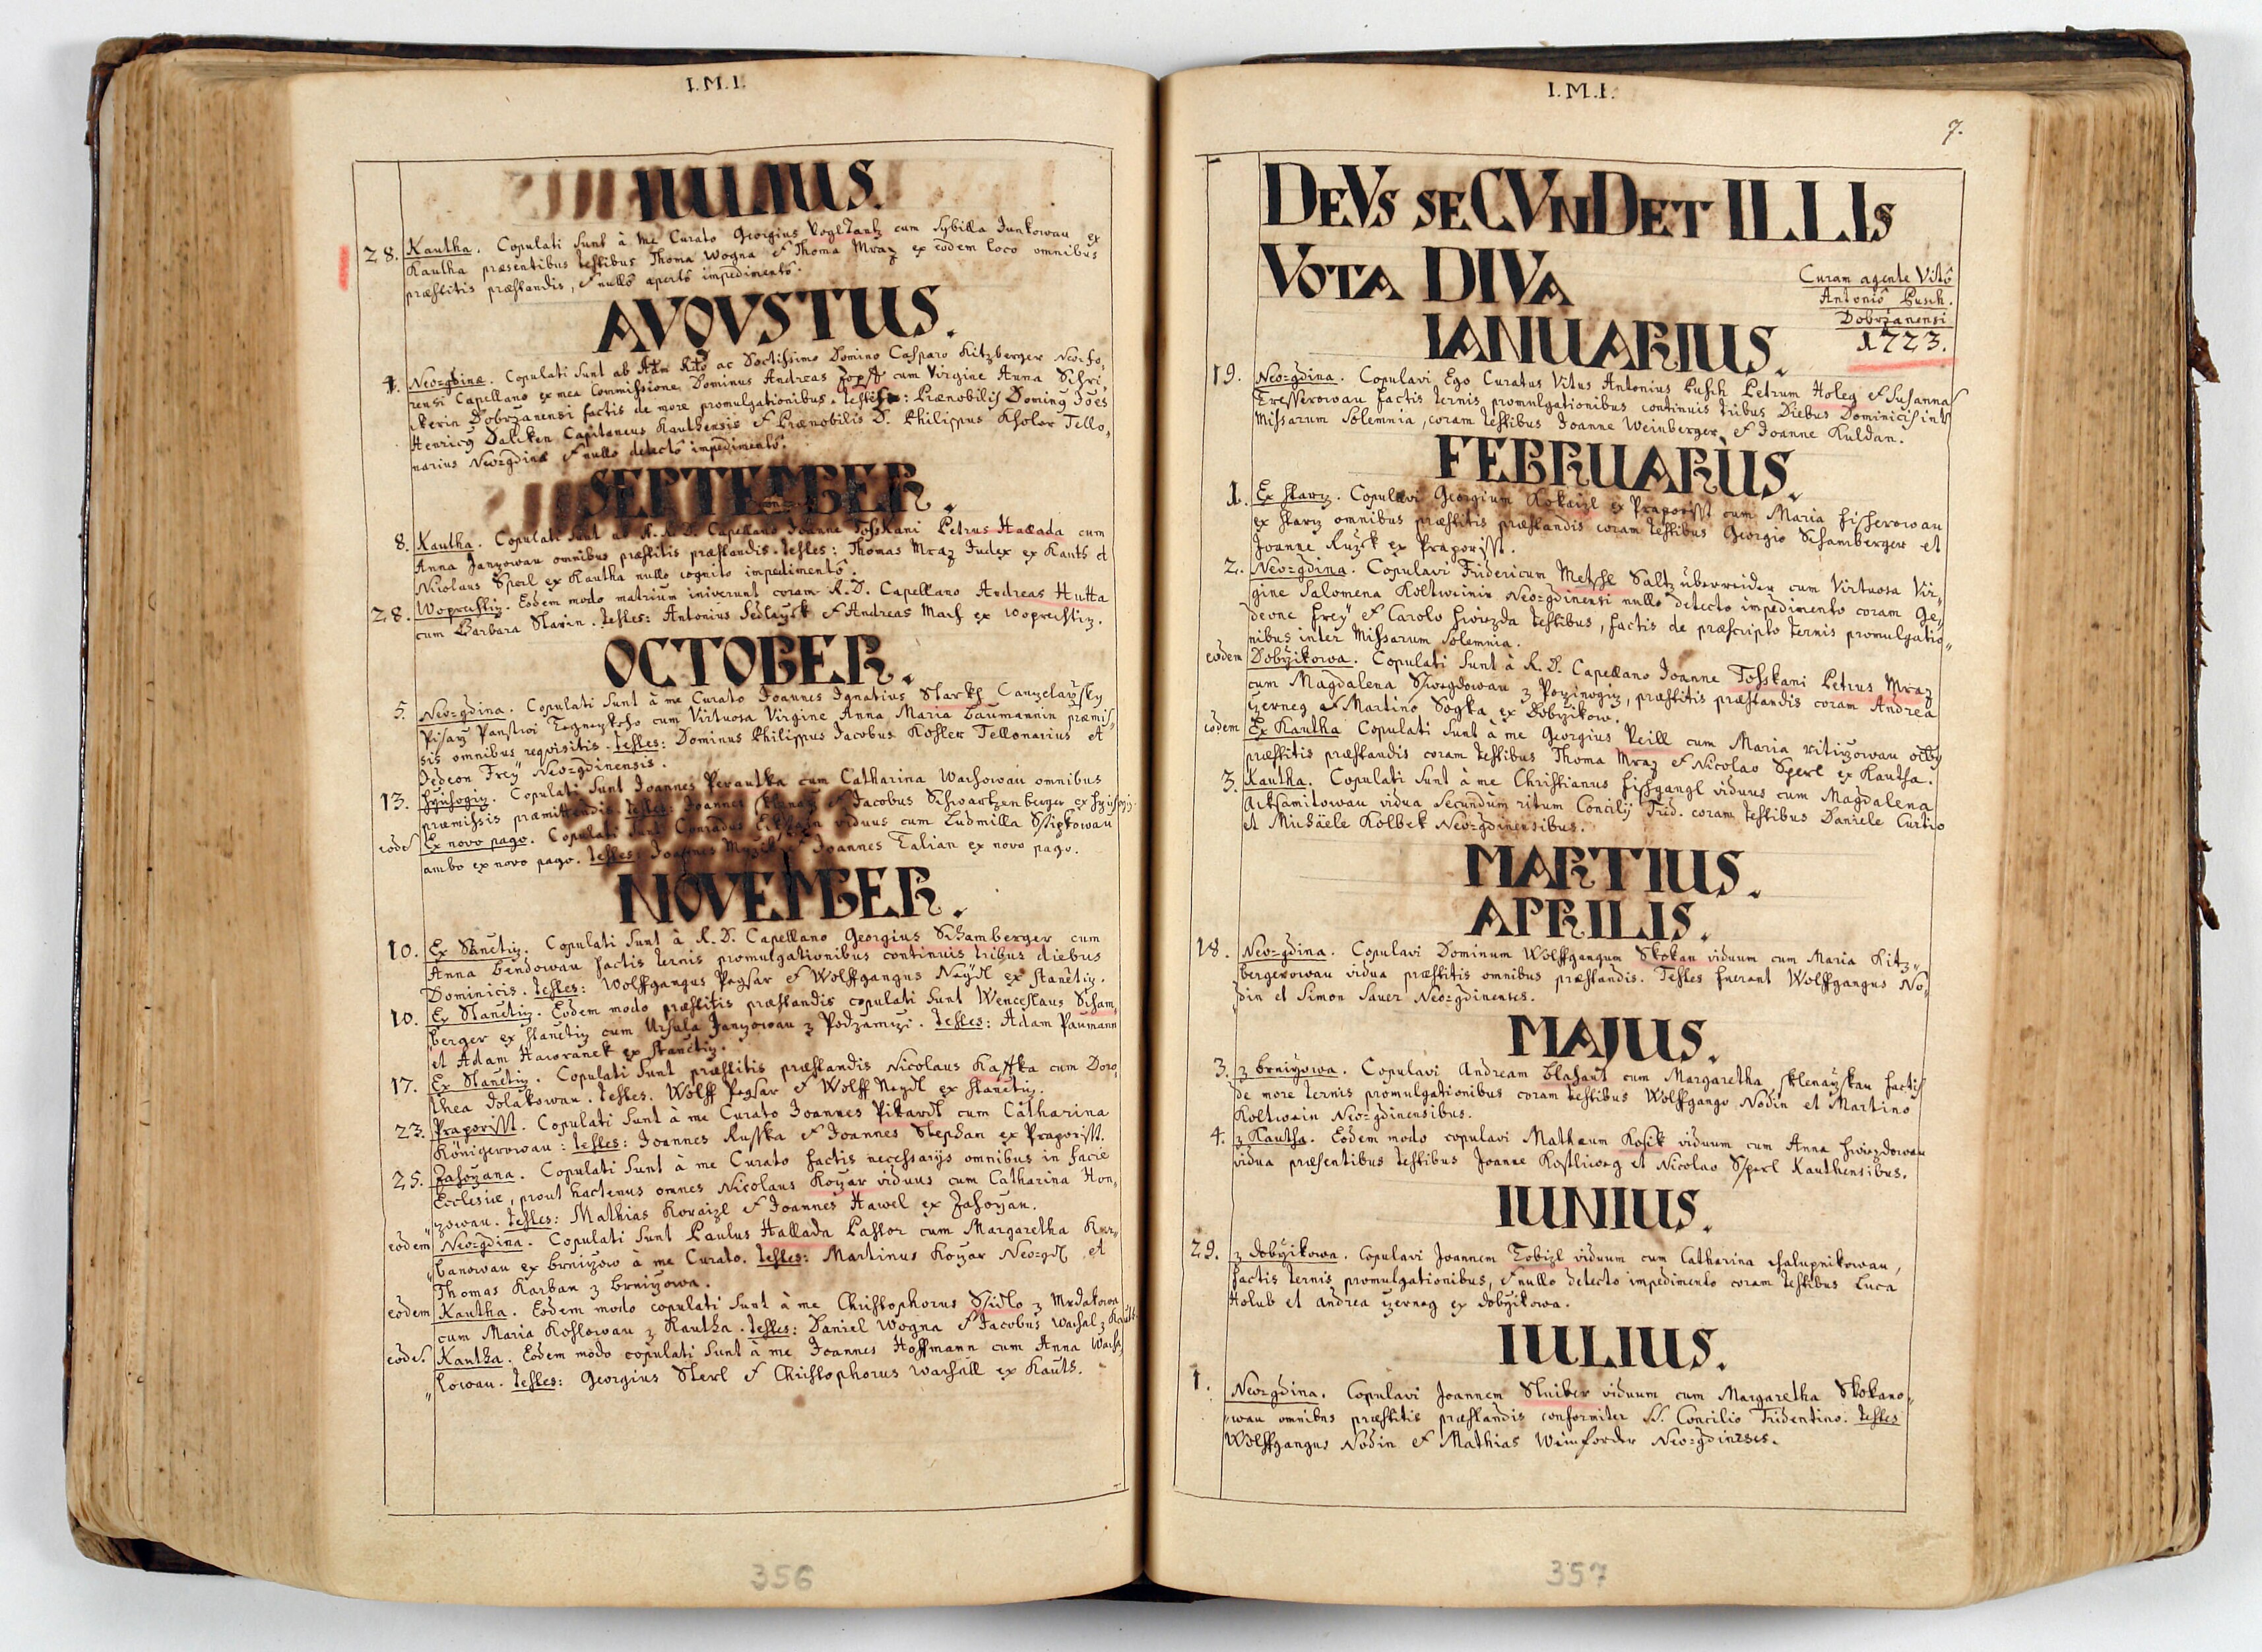 I.M.I.
IULIUS.
28. Kautha. Copulati sunt à me Curato Georgius Vogltantz cum Sybilla Junkowau ex
Kautha præsentibus testibus Thoma Wogna et Thoma Mraz ex eodem loco omnibus
præstitis præstandis, et nullô apertô impedimentô.
AVQVSTUS.
1. Neo=gdinæ. Copulati sunt ab ac Doctissimo Domino Casparo Kitzberger Neofo,
rensi Capellano ex mea Commissione Dominus Andreas Zopff cum Virgine Anna
Dobrzanensi factis de more promulgationibus. testibus: Prænobilis Domin9 Jões
Henric9 Daliken Capitaneus Kauthensis et Prænobilis D. Philippus Kholer Tello,
narius Neo=gdinæ et nullô detectô impedimentô.
SEPTEMBER.
8. Kautha. Copulati sunt à R. D. Capellano Joanne Tosskani Petrus Hallada cum
Anna Janzowau omnibus præstitis præstandis. testes: Thomas Mraz Judex ex Kauth et
Nicolaus Sperl ex Kautha nullo cognito impedimentô.
28. Woprechtiz. Eodem modo matrium iniverunt coram R. D. Capellano Andreas Hutta
cum Barbara Slavin. testes: Antonius Sedlaczk et Andreas Mach ex Woprechtiz.
OCTOBER.
5. Neo=gdina. Copulati sunt à me Curato Joannes Ignatius Starkh Canzelarzsky
Pisarz Panstwi cum Virtuosa Virgine Anna Maria Baumannin præmis,
sis omnibus requisitis. testes: Dominus Philippus Jacobus Kohler Tellonarius et
Jedeon Freÿ Neo=gdinensis.
13. Copulati sunt Joannes Perautka cum Catharina Wachowau omnibus
præmissis præmittendis. testes: Joannes et Jacobus Schwartzenberger
eode Ex novo pago. Copulati sunt Conradus viduus cum Ludmilla Stipkowau
ambo ex novo pago. testes: Joannes et Joannes Talian ex novo pago.
NOVEMBER.
10. Ex Stanctiz. Copulati sunt à R. D. Capellano Georgius Schamberger cum
Anna Bendowau factis ternis promulgationibus continuis tribus diebus
Dominicis. testes: Wolffgangus Pegsar et Wolffgangus Neÿdl ex Stanctiz.
10. Ex Stanctiz. Eodem modo præstitis præstandis copulati sunt Wenceslaus Scham,,
berger ex Stanctiz cum Ursula Janzowau z Podzamczi. testes: Adam Paumann
et Adam Haworanek ex Stanctiz.
17. Ex Stanctiz. Copulati sunt præstitis præstandis Nicolaus Kaffka cum Doro,
thea Dolakowau. testes. Wolff Pegsar et Wolff Negdl ex Stanctiz.
23. Praporisst. Copulati sunt à me Curato Joannes Pikardl cum Catharina
Königerowau: testes: Joannes Russka et Joannes Stephan ex Praporisst.
25. Zahorzana. Copulati sunt à me Curato factis necessarijs omnibus in facie
Ecclesiæ, prout hactenus omnes Nicolaus Kozar viduus cum Catharina Hon,
zowau. testes: Mathias Koraizl et Joannes Hawel ex Zahorzan.
eodem Neo=gdina. Copulati sunt Paulus Hallada Pastor cum Margaretha Kor,,
banowau ex Brnirzow à me Curato. testes: Martinus Kozar Neo=gd. et
Thomas Karban z Brnirzowa.
eodem Kautha. Eodem modo copulati sunt à me Christophorus Ssidlo z Mrdakowa
cum Maria Kohlowau z Kautha. testes: Daniel Wogna et Jacobus Wachal z Kauth.
eode. Kautha. Eodem modo copulati sunt à me Joannes Hoffmann cum Anna Wacha,
lowau. testes: Georgius Sterl et Christophorus Wachall ex Kauth.
356
I.M.I.
7.
DeVs seCVnDet ILLIs
Vota DIVa
Curam agente Vitô
Antoniô Pusch.
Dobrzanensi
1723.
IANUARIUS.
19. Neo=gdina. Copulavi Ego Curatus Vitus Antonius Pusch Petrum Holeg et Susannā
Tresserowau factis ternis promulgationibus continuis tribus Diebus Dominicis inter
Missarum Solemnia, coram testibus Joanne Weinberger et Joanne Kuldan.
FEBRUARIUS.
1. Ex Starz. Copulavi Georgium Kokaizl ex Praporisst cum Maria Fisserowau
ex Starz omnibus præstitis præstandis coram testibus Georgio Schamberger et
Joanne Ruzck ex Praporisst.
2. Neo=gdina. Copulavi Fridericum Metschl Saltz überreider cum Virtuosa Vir,
gine Salomena Koltweinin Neo=gdinensi nullo detecto impedimento coram Ge,
deone Freÿ et Carolo Hwiezda testibus, factis de præscripto ternis promulgatio,,
nibus inter Missarum Solemnia.
eodem Dobrzikowa. Copulati sunt à R. D. Capellano Joanne Tosskani Petrus Mraz
cum Magdalena z Poczinowiz, præstitis præstandis coram Andrea
Czerneg et Martino Sogka ex Dobrzikow.
eodem Ex Kautha Copulati sunt à me Georgius Veill cum Maria
præstitis præstandis coram testibus Thoma Mraz et Nicolao Sperl ex Kautha.
3. Kautha. Copulati sunt à me Christianus Fischgangl viduus cum Magdalena
Aksamitowau vidua secundum ritum Concilij Trid. coram testibus Daniele Curtio
et Michäele Kolbek Neo=gdinensibus.
MARTIUS.
APRILIS.
18. Neo=gdina. Copulavi Dominum Wolffgangum Skokan viduum cum Maria Kitz,,
bergerowau vidua præstitis omnibus præstandis. Testes fuerant Wolffgangus No,
din et Simon Sauer Neo=gdinenses.
MAJUS.
3. z Brnirzowa. Copulavi Andream Blahaut cum Margaretha Sklenarzkau factis
de more ternis promulgationibus coram testibus Wolffgango Nodin et Martino
Koltwein Neo=gdinensibus.
4. z Kautha. Eodem modo copulavi Mathæum Kosik viduum cum Anna Hwiezdowau
vidua præsentibus testibus Joanne Kostliweg et Nicolao Sperl Kauthensibus.
IUNIUS.
29. z Dobrzikowa. Copulavi Joannem Tobizl viduum cum Catharina Chalupnikowau,
factis ternis promulgationibus, et nullo detecto impedimento coram testibus Luca
Holub et Andrea Czerneg ex Dobrzikowa.
IULIUS.
1. Neo=gdina. Copulavi Joannem Stuiber viduum cum Margaretha Skokano,,
wau omnibus præstitis præstandis conformiter S. Concilio Tridentino. testes
Wolffgangus Nodin et Mathias Weinforder Neo=gdinenses.
357